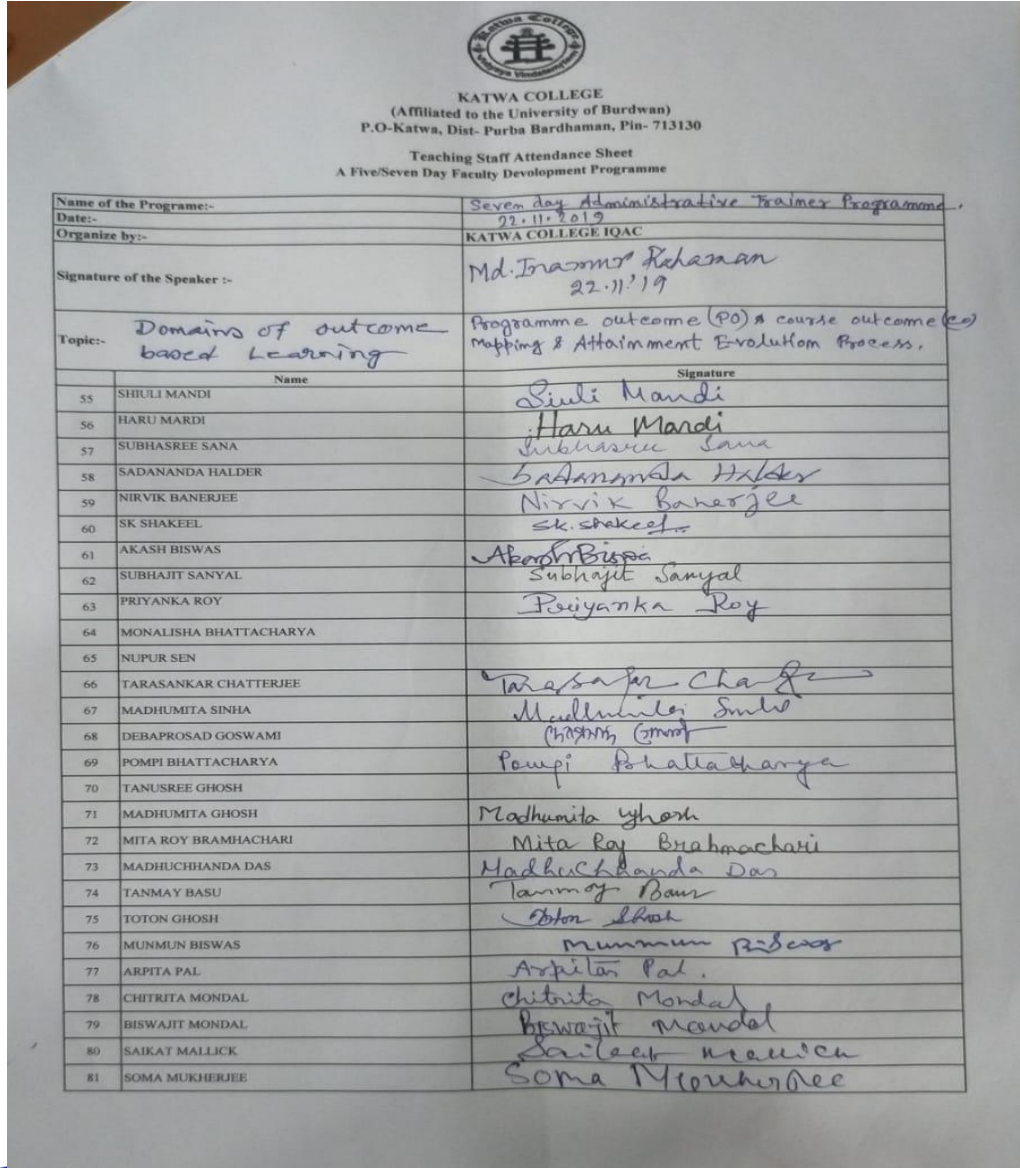 Katwa College
Vidyaya Vindatemritam
KATWA COLLEGE
(Affiliated to the University of Burdwan)
P.O-Katwa, Dist- Purba Bardhaman, Pin- 713130
Teaching Staff Attendance Sheet
A Five/Seven Day Faculty Devolopment Programme
Name of the Programe:- Seven day Administrative Trainer Programme.
Date:- 22.11.2019
Organize by:- KATWA COLLEGE IQAC
Signature of the Speaker :- Md. Inamur Rahaman
22.11.'19
Topic:- Domains of outcome based Learning Programme outcome (PO) & course outcome (co)
Mapping & Attainment Evolution Process.
Name Signature
55 SHIULI MANDI Siuli Mandi
56 HARU MARDI Haru Mardi
57 SUBHASREE SANA Subhasree Sana
58 SADANANDA HALDER Sadananda Halder
59 NIRVIK BANERJEE Nirvik Banerjee
60 SK SHAKEEL Sk. Shakeel
61 AKASH BISWAS Akash
62 SUBHAJIT SANYAL Subhajit Sanyal
63 PRIYANKA ROY Priyanka Roy
64 MONALISHA BHATTACHARYA
65 NUPUR SEN
66 TARASANKAR CHATTERJEE
67 MADHUMITA SINHA Madhumita Sinha
68 DEBAPROSAD GOSWAMI
69 POMPI BHATTACHARYA Pompi Bhattacharya
70 TANUSREE GHOSH
71 MADHUMITA GHOSH Madhumita Ghosh
72 MITA ROY BRAMHACHARI Mita Roy Brahmachari
73 MADHUCHHANDA DAS Madhuchhanda Das
74 TANMAY BASU Tanmoy Basu
75 TOTON GHOSH Toton Ghosh
76 MUNMUN BISWAS Munmun Biswas
77 ARPITA PAL Arpita Pal.
78 CHITRITA MONDAL Chitrita Mondal
79 BISWAJIT MONDAL Biswajit Mondal
80 SAIKAT MALLICK Saikat Mallick
81 SOMA MUKHERJEE Soma Mukherjee